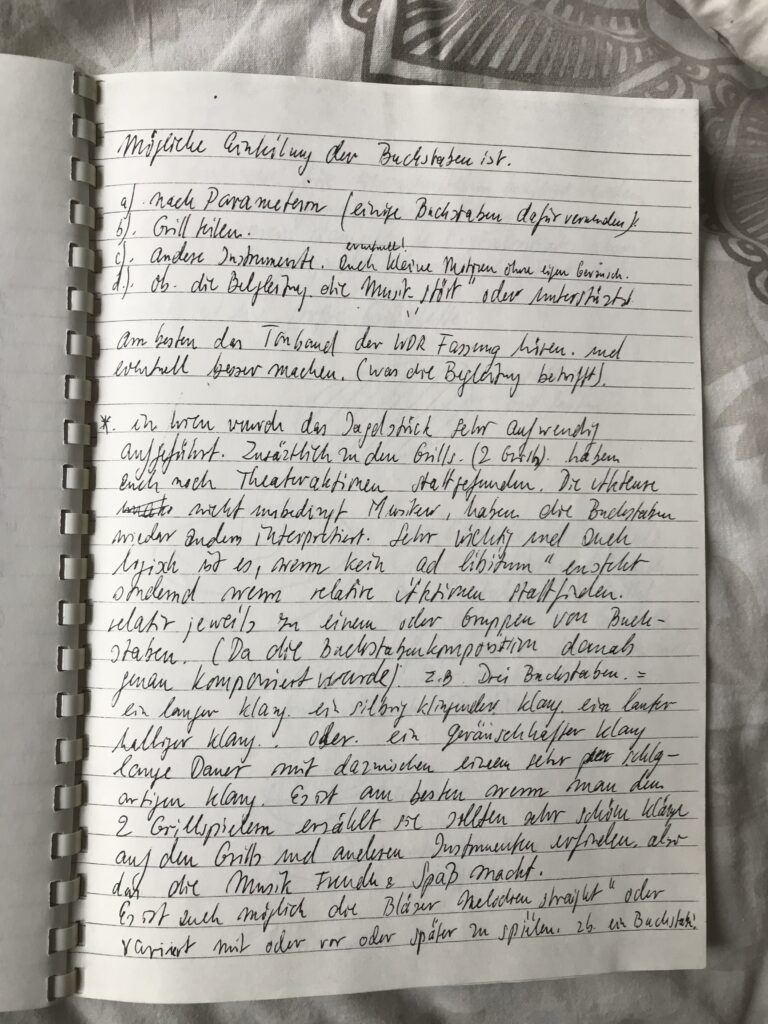 Mögliche Einteilung der Buchstaben ist.
a). nach Parametern (einige Buchstaben dafür verwenden).
b). Grill teilen.
eventuell!
c). andere Instrumente. auch kleine Motoren ohne eigen Geräusch.
d.). ob. die Belgleitung. die Musik „stört" oder unterstützt
am besten das Tonband der WDR Fassung hören. und
eventuell besser machen. (was die Begleitung betrifft).
*. in Wien wurde das Jagdstück sehr aufwendig
aufgeführt. Zusätzlich zu den Grills. (2 Grills). haben
auch noch Theateraktionen stattgefunden. Die Akteure
nicht unbedingt Musiker, haben die Buchstaben
wieder anders interpretiert. Sehr wichtig und auch
logisch ist es, wenn kein ad libitum" ensteht
sondernd wenn relative Aktionen stattfinden.
relativ jeweils zu einem oder Gruppen von Buch-
staben. (Da die Buchstabenkomposition damals
genau komponiert wurde). z.B. Drei Buchstaben. =
ein langer Klang. ein silbrig klingender Klang. ein lauter
halliger Klang. . oder. ein geräuschhafter Klang
lange Dauer mit dazwischen einem sehr schlag-
artigen Klang. Es ist am besten wenn man den
2 Grillspielern erzählt sie sollten sehr schöne Klänge
auf den Grills und anderen Instrumenten erfinden. also
das die Musik Freude & Spaß macht.
Es ist auch möglich die Bläser Melodien straight" oder
variiert mit oder vor oder später zu spielen. zb. ein Buchstabe!